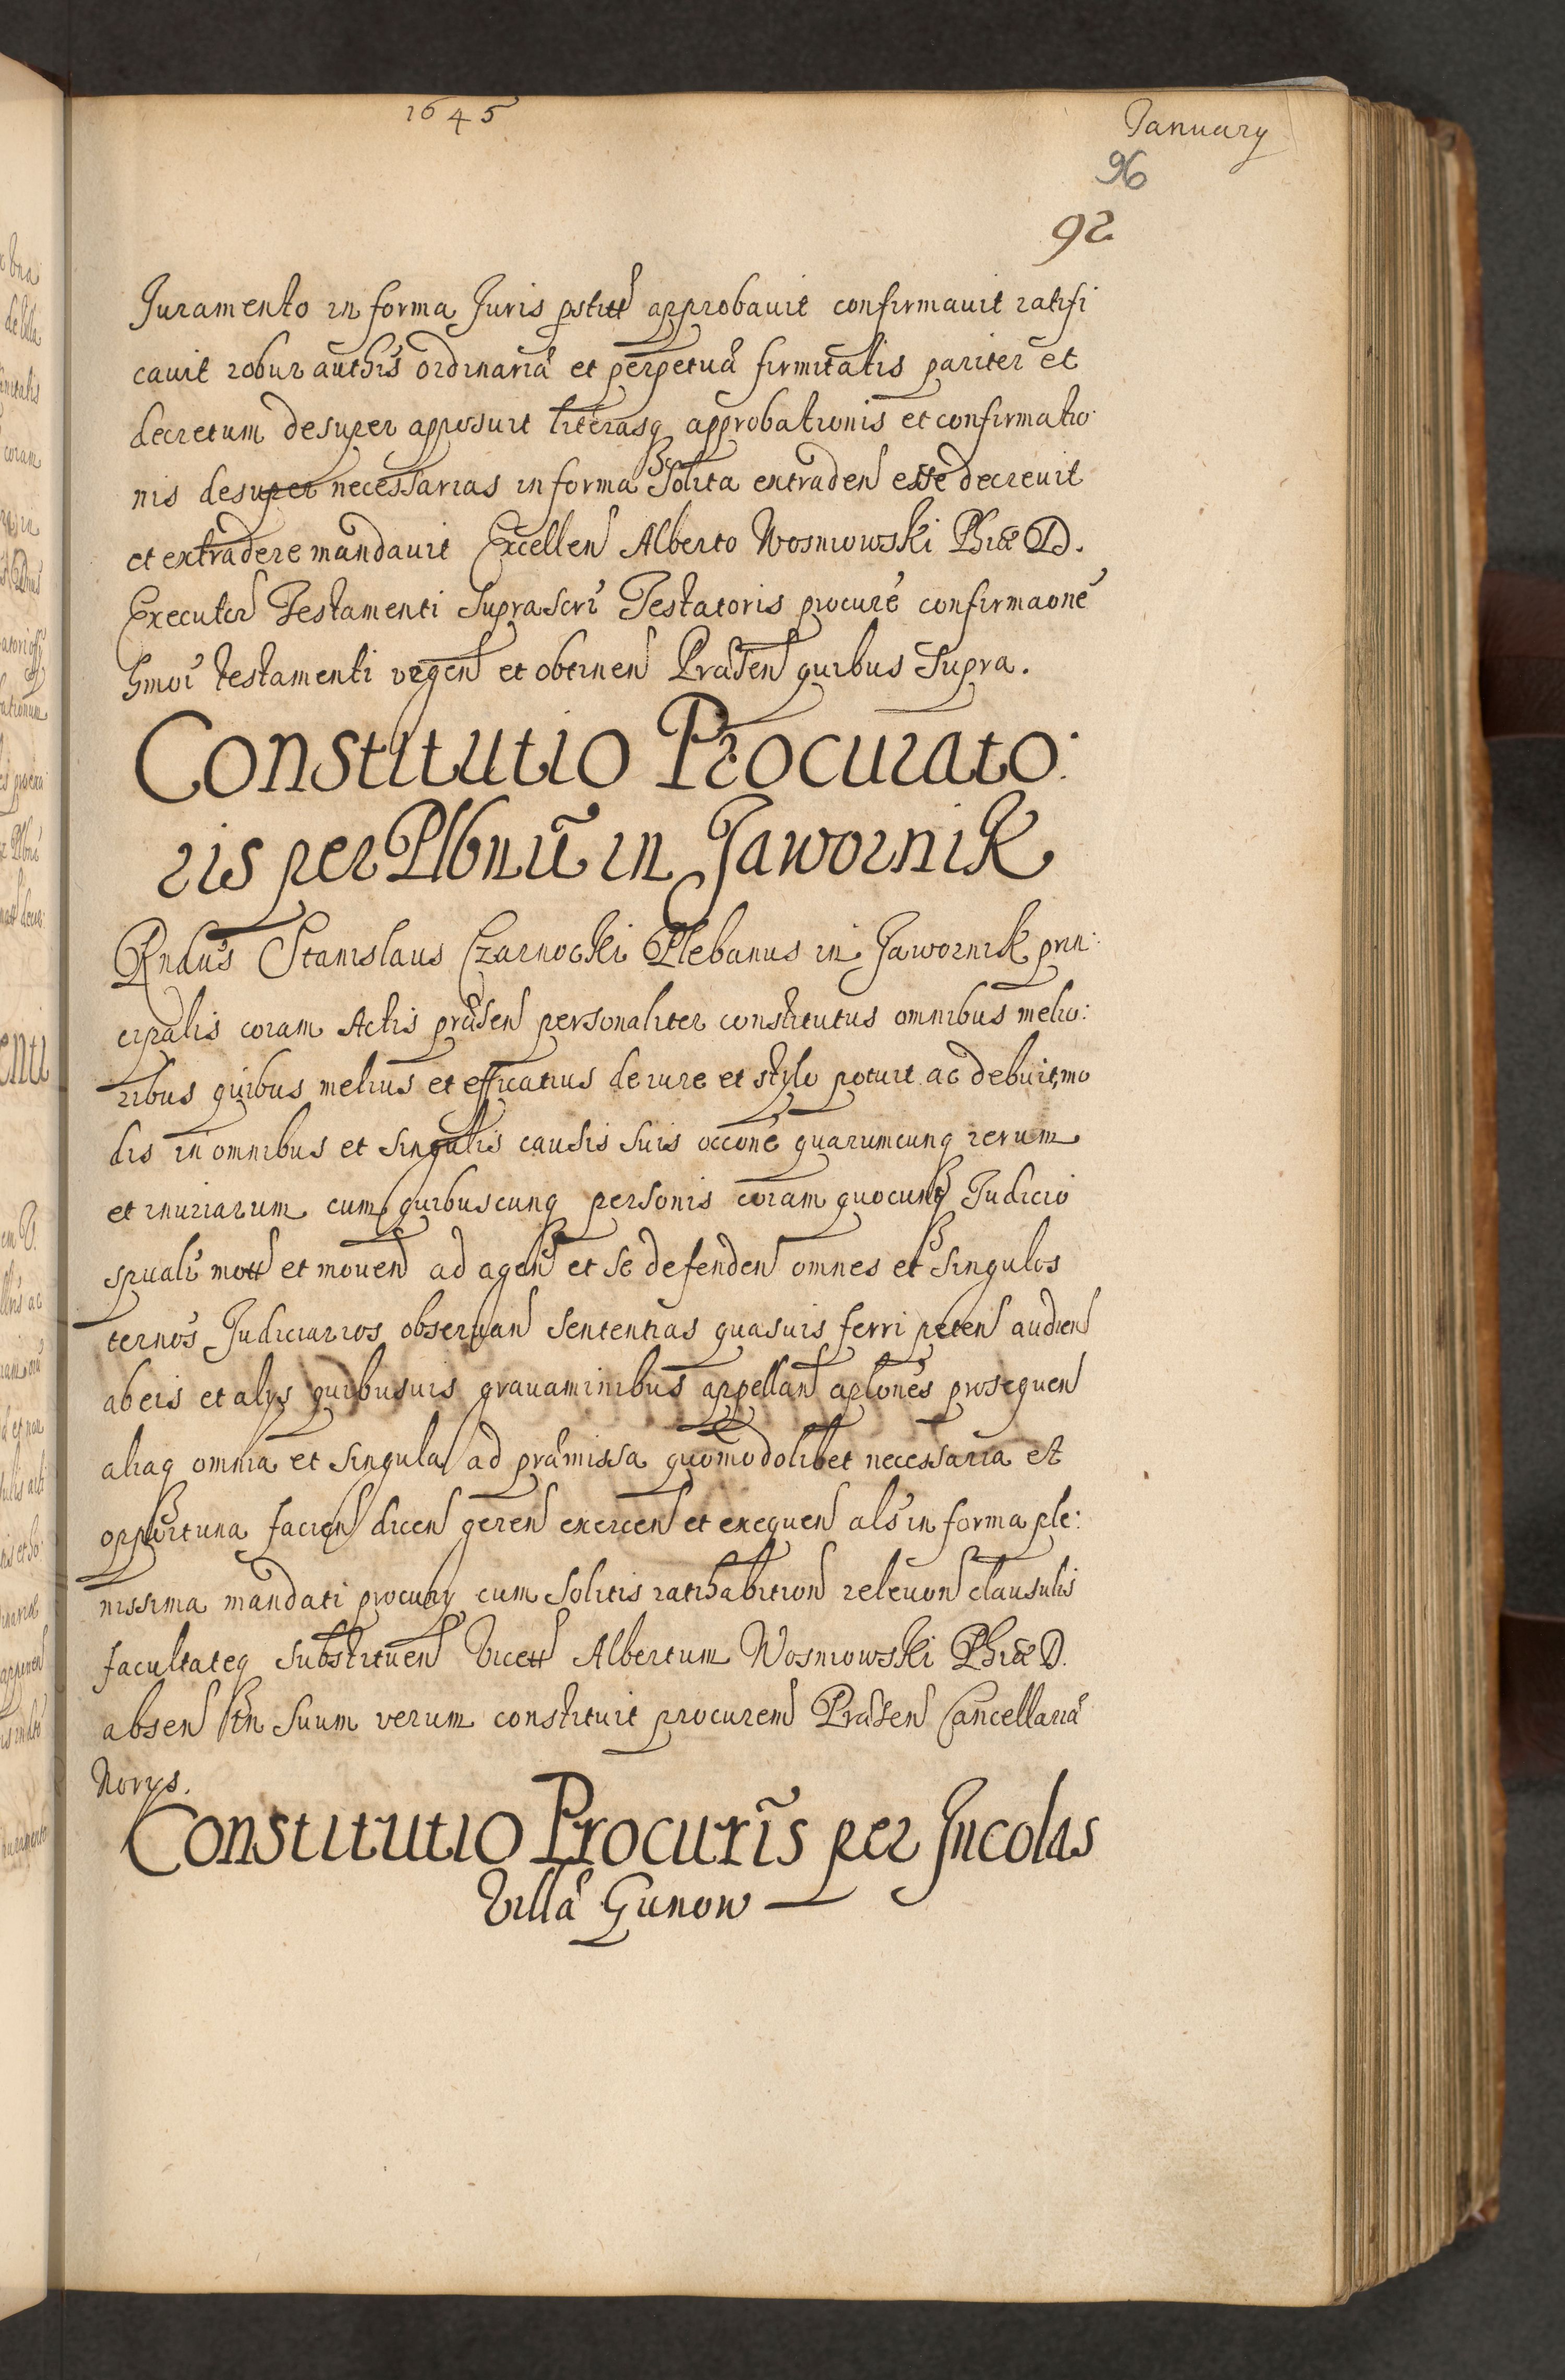 1645
January
96
92
Juramento in forma Juris pstitt approbavit confirmavit ratifi
cavit robur authis ordinariæ et perpetuæ firmitatis pariter et
decretum desuper apposuit literasq approbationis et confirmatio
nis desuper necessarias in forma solita extraden esse decrevit
et extradere mandavit Excellen Alberto Wosniowski Phiæ D.
Executor Testamenti suprascri Testatoris procure confirmaone
hmoi testamenti vrgen et obtinen Præsen quibus supra.
Constitutio Procurato:
ris per Plbnu in Jawornik
Rndus Stanislaus Czarnocki Plebanus in Jawornik prin:
cipalis coram Actis præsen personaliter constitutus omnibus melio:
ribus quibus melius et efficatius de iure et stylo potuit ac debuit mo
dis in omnibus et singulis causis suis occone quarumcunq rerum
et iniuriarum cum quibuscunq personis coram quocunq Judicio
spuali mott et movend ad agen et se defenden omnes et singulos
ternos Judiciarios observan sententias quasuis ferri peten audien
ab eis et alys quibusuis gravaminibus appellan aplones prosequen
aliaq omnia et singula ad præmissa quomodolibet necessaria et
opportuna facien dicen geren exercen et exequen als in forma ple:
nissima mandati procury cum solitis ratihabition relevon clausulis
facultateq substituen Excell Albertum Wosniowski Phiæ D.
absen tn suum verum constituit procurem Præsen Cancellariæ
Norys.
Constitutio Procuris per Incolas
Villæ Gunow